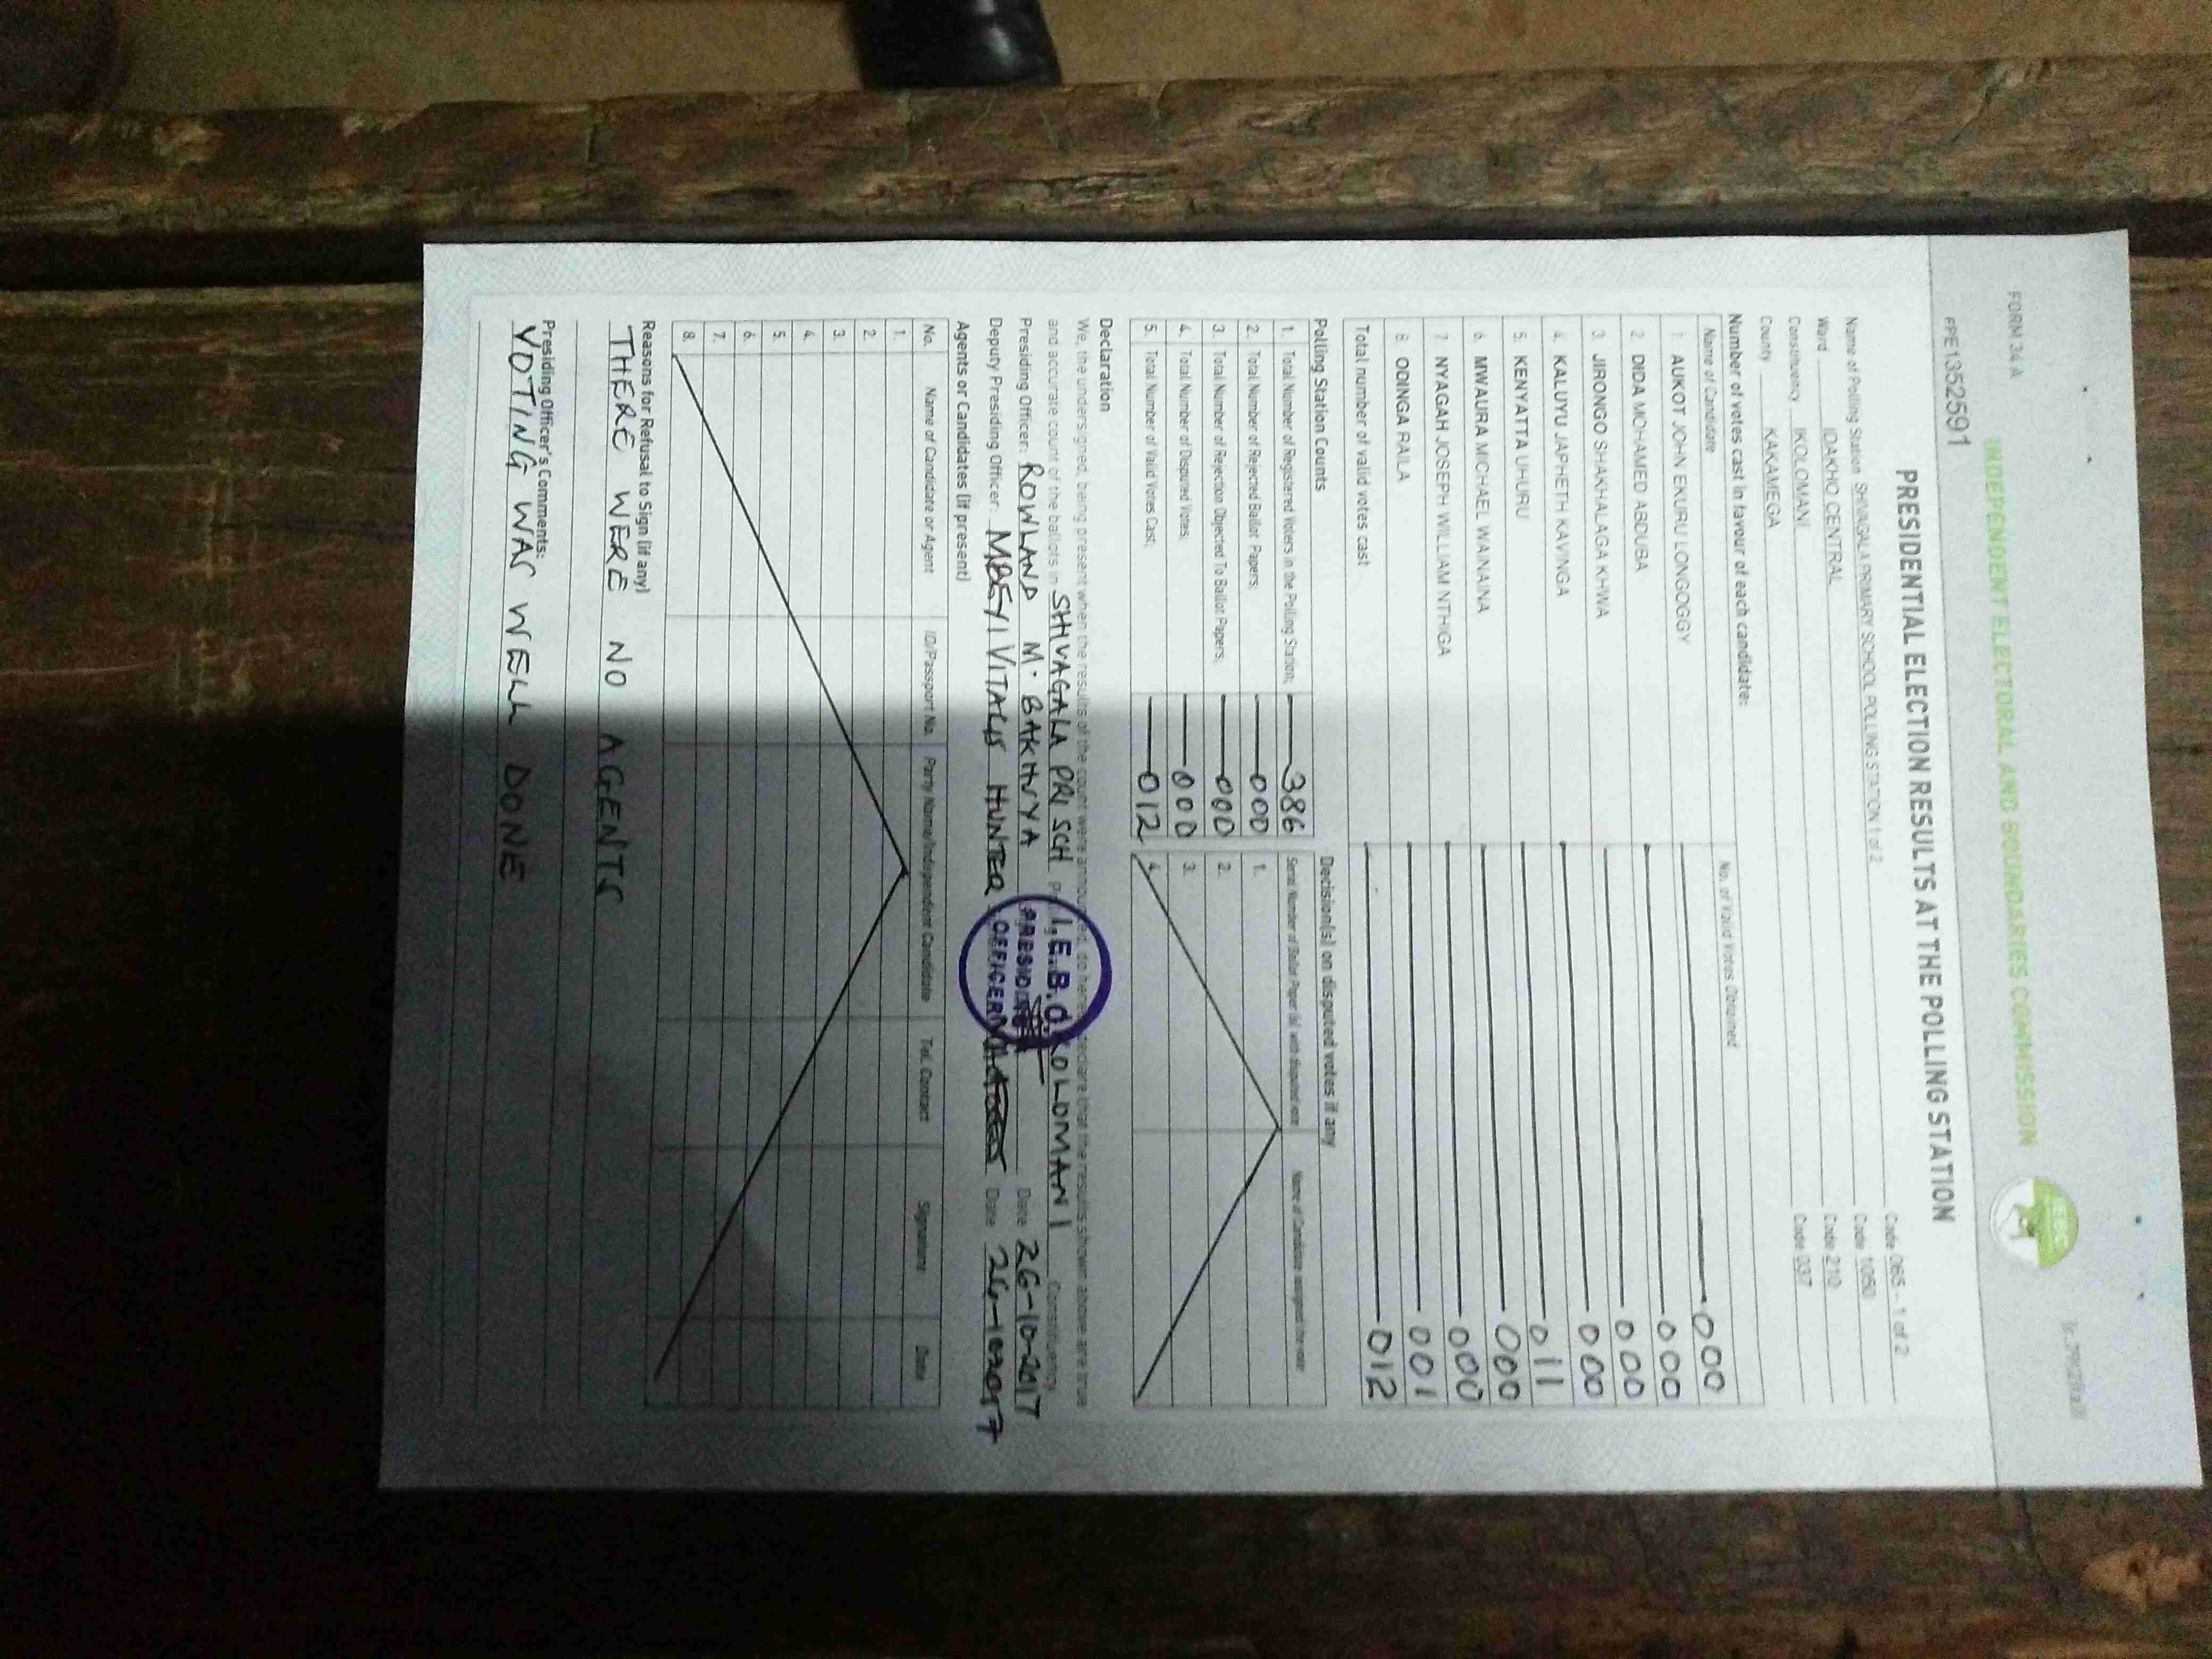 FORM 34 A
INDEPENDENT ELECTORAL AND BOUNDARIES COMMISSION
IEBC
FPE1352591
PRESIDENTIAL ELECTION RESULTS AT THE POLLING STATION
Name of Polling Station SHIVAGALA PRIMARY SCHOOL POLLING STATION 1 of 2 Code 065 - 1 of 2
Ward IDAKHO CENTRAL Code 1050
Constituency IKOLOMANI Code 210
County KAKAMEGA Code 037
Number of votes cast in favour of each candidate:
Name of Candidate No. of Valid Votes Obtained
1. AUKOT JOHN EKURU LONGOGGY 000
2. DIDA MOHAMED ABDUBA 000
3. JIRONGO SHAKHALAGA KHWA 000
4. KALUYU JAPHETH KAVINGA 000
5. KENYATTA UHURU 011
6. MWAURA MICHAEL WAINAINA 000
7. NYAGAH JOSEPH WILLIAM NTHIGA 000
8. ODINGA RAILA 001
Total number of valid votes cast 012
Polling Station Counts Decision(s) on disputed votes if any
1. Total Number of Registered Voters in the Polling Station; 386 Serial Number of Ballot Paper (s) with disputed vote Name of Candidate assigned the vote
2. Total Number of Rejected Ballot Papers; 000 1.
3. Total Number of Rejection Objected To Ballot Papers; 000 2.
4. Total Number of Disputed Votes; 000 3.
5. Total Number of Valid Votes Cast; 012 4.
Declaration
We, the undersigned, being present when the results of the count were announced, do hereby declare that the results shown above are true
and accurate count of the ballots in SHIVAGALA PRI SCH IKOLOMANI Constituency
Presiding Officer: ROWLAND M. BAKHUYA Date 26-10-2017
Deputy Presiding Officer: MBEYI VITALIS HUNTER Date 26-10-2017
I.E.B.C
PRESIDING
OFFICER
Agents or Candidates (if present)
No. Name of Candidate or Agent ID/Passport No. Party Name/Independent Candidate Tel. Contact Signature Date
1.
2.
3.
4.
5.
6.
7.
8.
Reasons for Refusal to Sign (if any)
THERE WERE NO AGENTS
Presiding Officer's Comments:
VOTING WAS WELL DONE